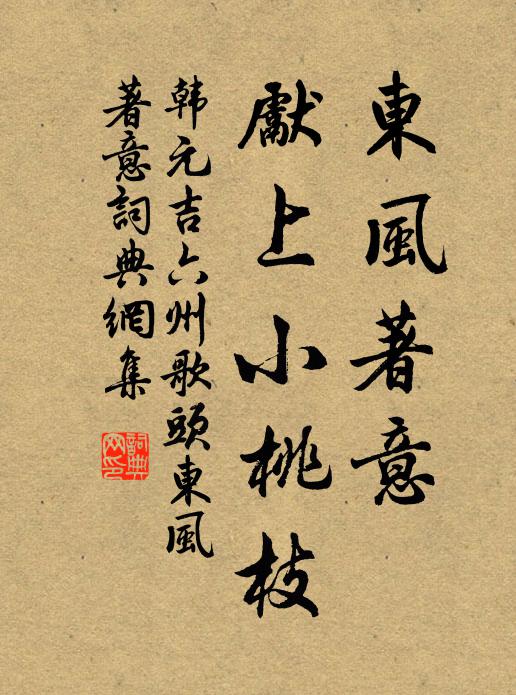 東風著意
獻上小桃枝
韩元吉六州歌頭東風
著意詞典網集
詞典网印